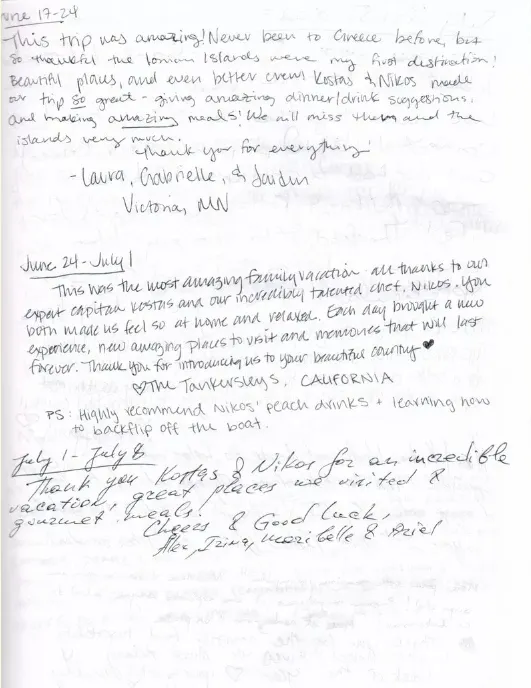 June 17-24
This trip was amazing! Never been to Greece before, but
so thankful the Ionian Islands were my first destination!
Beautiful places, and even better crew! Kostas & Nikos made
our trip so great - giving amazing dinner/drink suggestions,
and making amazing meals! We will miss them and the
islands very much.
Thank you for everything!
- Laura, Gabrielle, & Jaidin
Victoria, MN
June 24 - July 1
This was the most amazing family vacation - all thanks to our
expert capitan Kostas and our incredibly talented chef, Nikos. You
both made us feel so at home and relaxed. Each day brought a new
experience, new amazing places to visit and memories that will last
forever. Thank you for introducing us to your beautiful country ♥
♡ The Tankersleys, CALIFORNIA
PS: Highly recommend Nikos' peach drinks + learning how
to backflip off the boat.
July 1 - July 8
Thank you Kostas & Nikos for an incredible
vacation, great places we visited &
gourmet meals.
Cheers & Good Luck,
Alex, Irina, Maribelle & Ariel